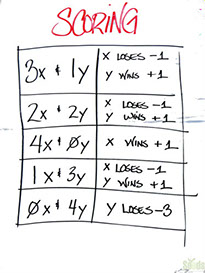 SCORING
3x & 1y
x LOSES -1
y WINS +1
2x & 2y
x LOSES -1
y WINS +1
4x & 0y
x WINS +1
1x & 3y
x LOSES -1
y WINS +1
0x & 4y
y LOSES -3